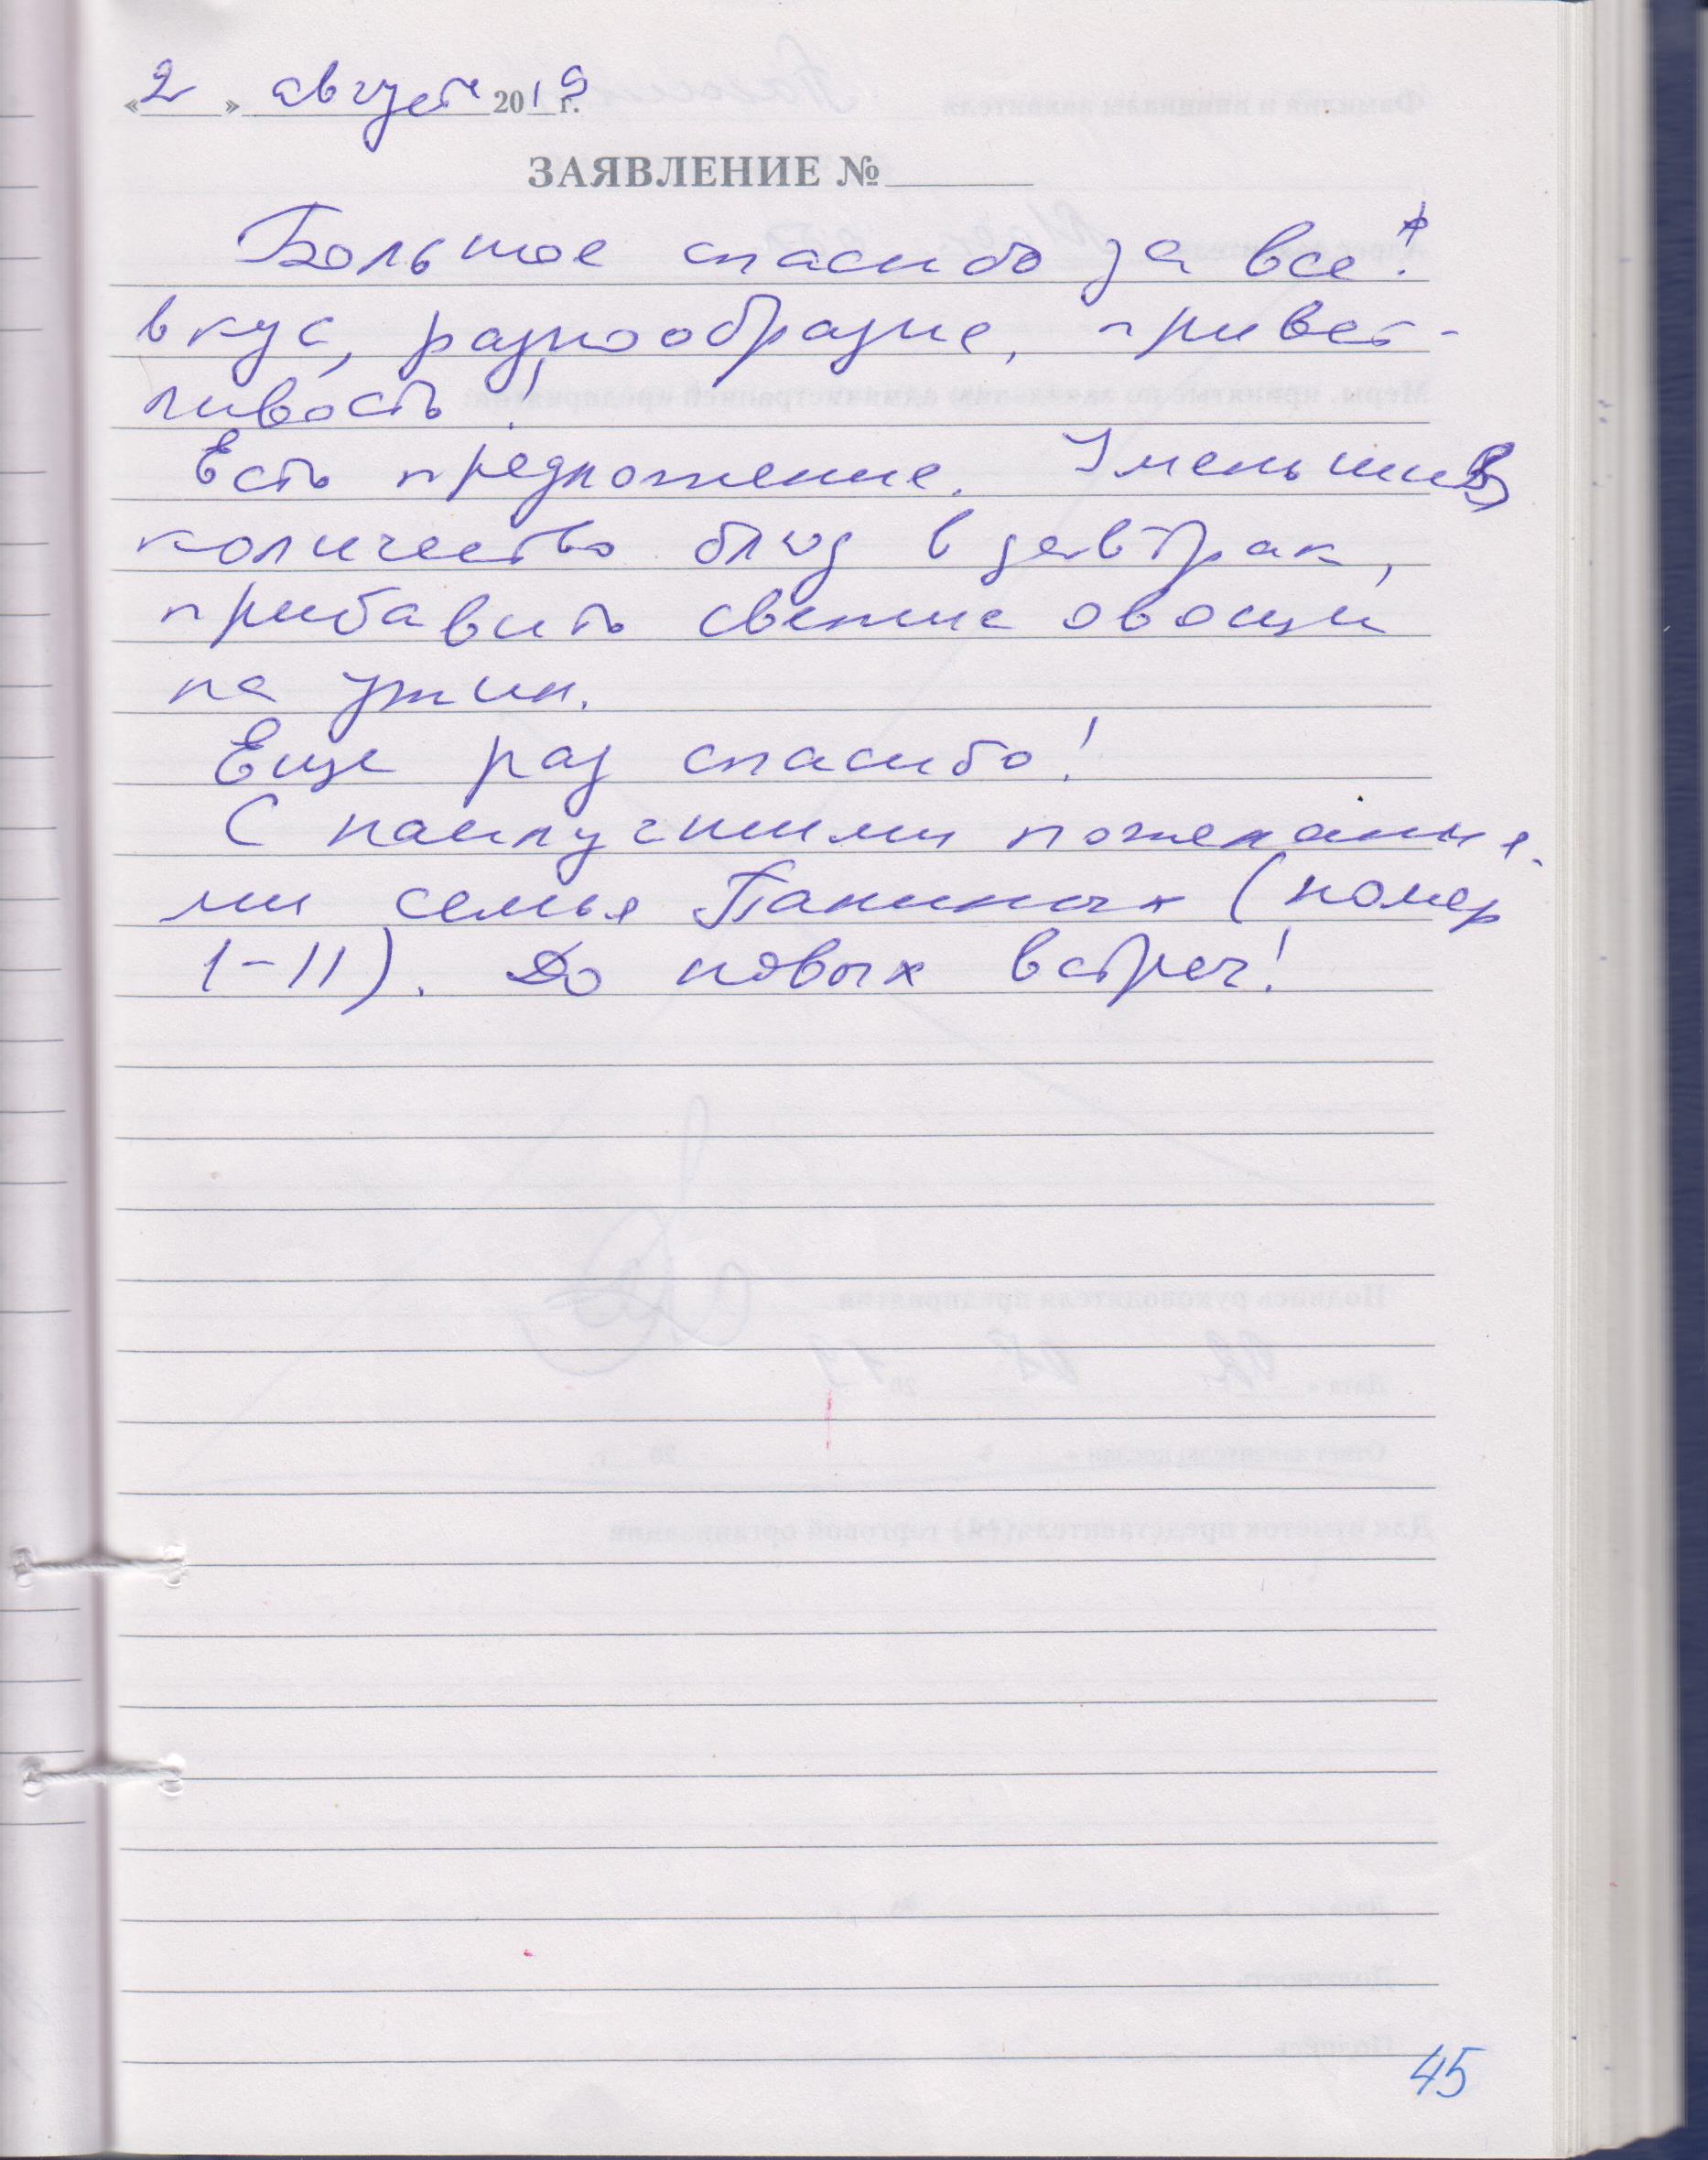 «2» август 2019 г.
ЗАЯВЛЕНИЕ №
Большое спасибо за все!
вкус, разнообразие, привет-
ливость!
Есть предложение. Уменьшив
количество блюд в завтрак,
прибавить свежие овощи
на ужин.
Еще раз спасибо!
С наилучшими пожелания-
ми семья Паниных (номер
1-11). До новых встреч!
45